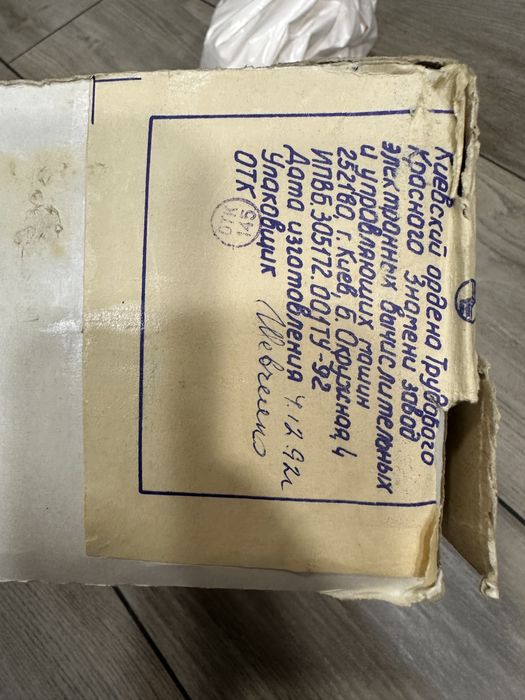 Киевский ордена Трудового
Красного Знамени завод
электронных вычислительных
и управляющих машин
252180 г. Киев Б. Окружная, 4
ИПВБ 305172 001ТУ-92
Дата изготовления 4.12.92г
Упаковщик Шевченко
ОТК
ОТК
145